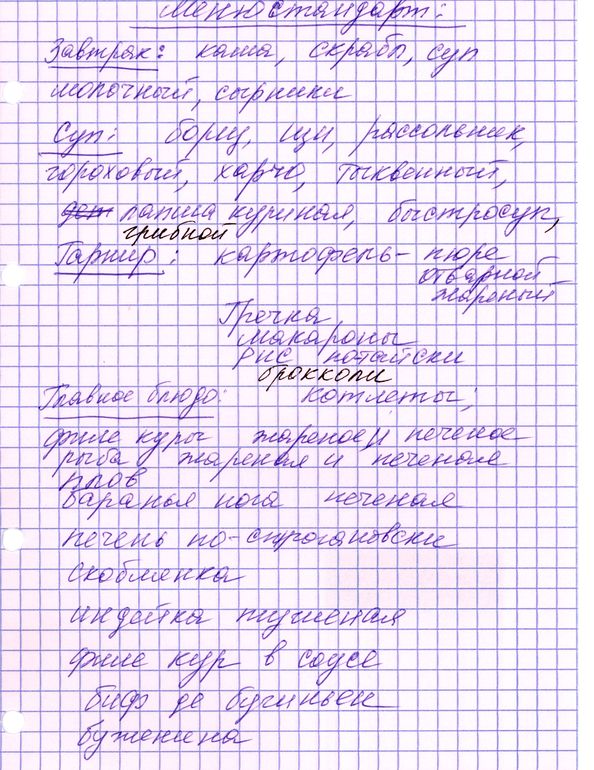 Меню стандарт:
Завтрак: каша, скрабы, суп
молочный, сырники
Суп: борщ, щи, рассольник,
гороховый, харчо, тыквенный,
лапша куриная, быстросуп,
грибной
Гарнир: картофель - пюре
отварной
жареный
Гречка
макароны
рис по-тайски
брокколи
Главное блюдо: котлеты;
филе куры жареное и печеное
рыба жареная и печеная
плов
баранья нога печеная
печень по-строгановски
скоблянка
индейка тушеная
филе кур в соусе
биф де бугиньен
буженина